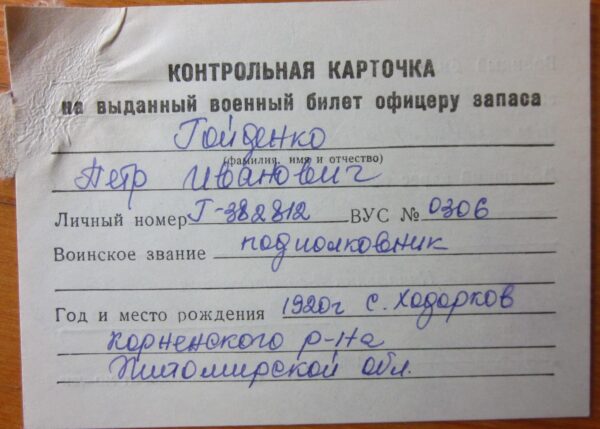 КОНТРОЛЬНАЯ КАРТОЧКА
на выданный военный билет офицеру запаса
Гойденко
(фамилия, имя и отчество)
Петр Иванович
Личный номер Г-382812 ВУС № 0306
Воинское звание подполковник
Год и место рождения 1920г с. Ходорков
Корненского р-на
Житомирской обл.